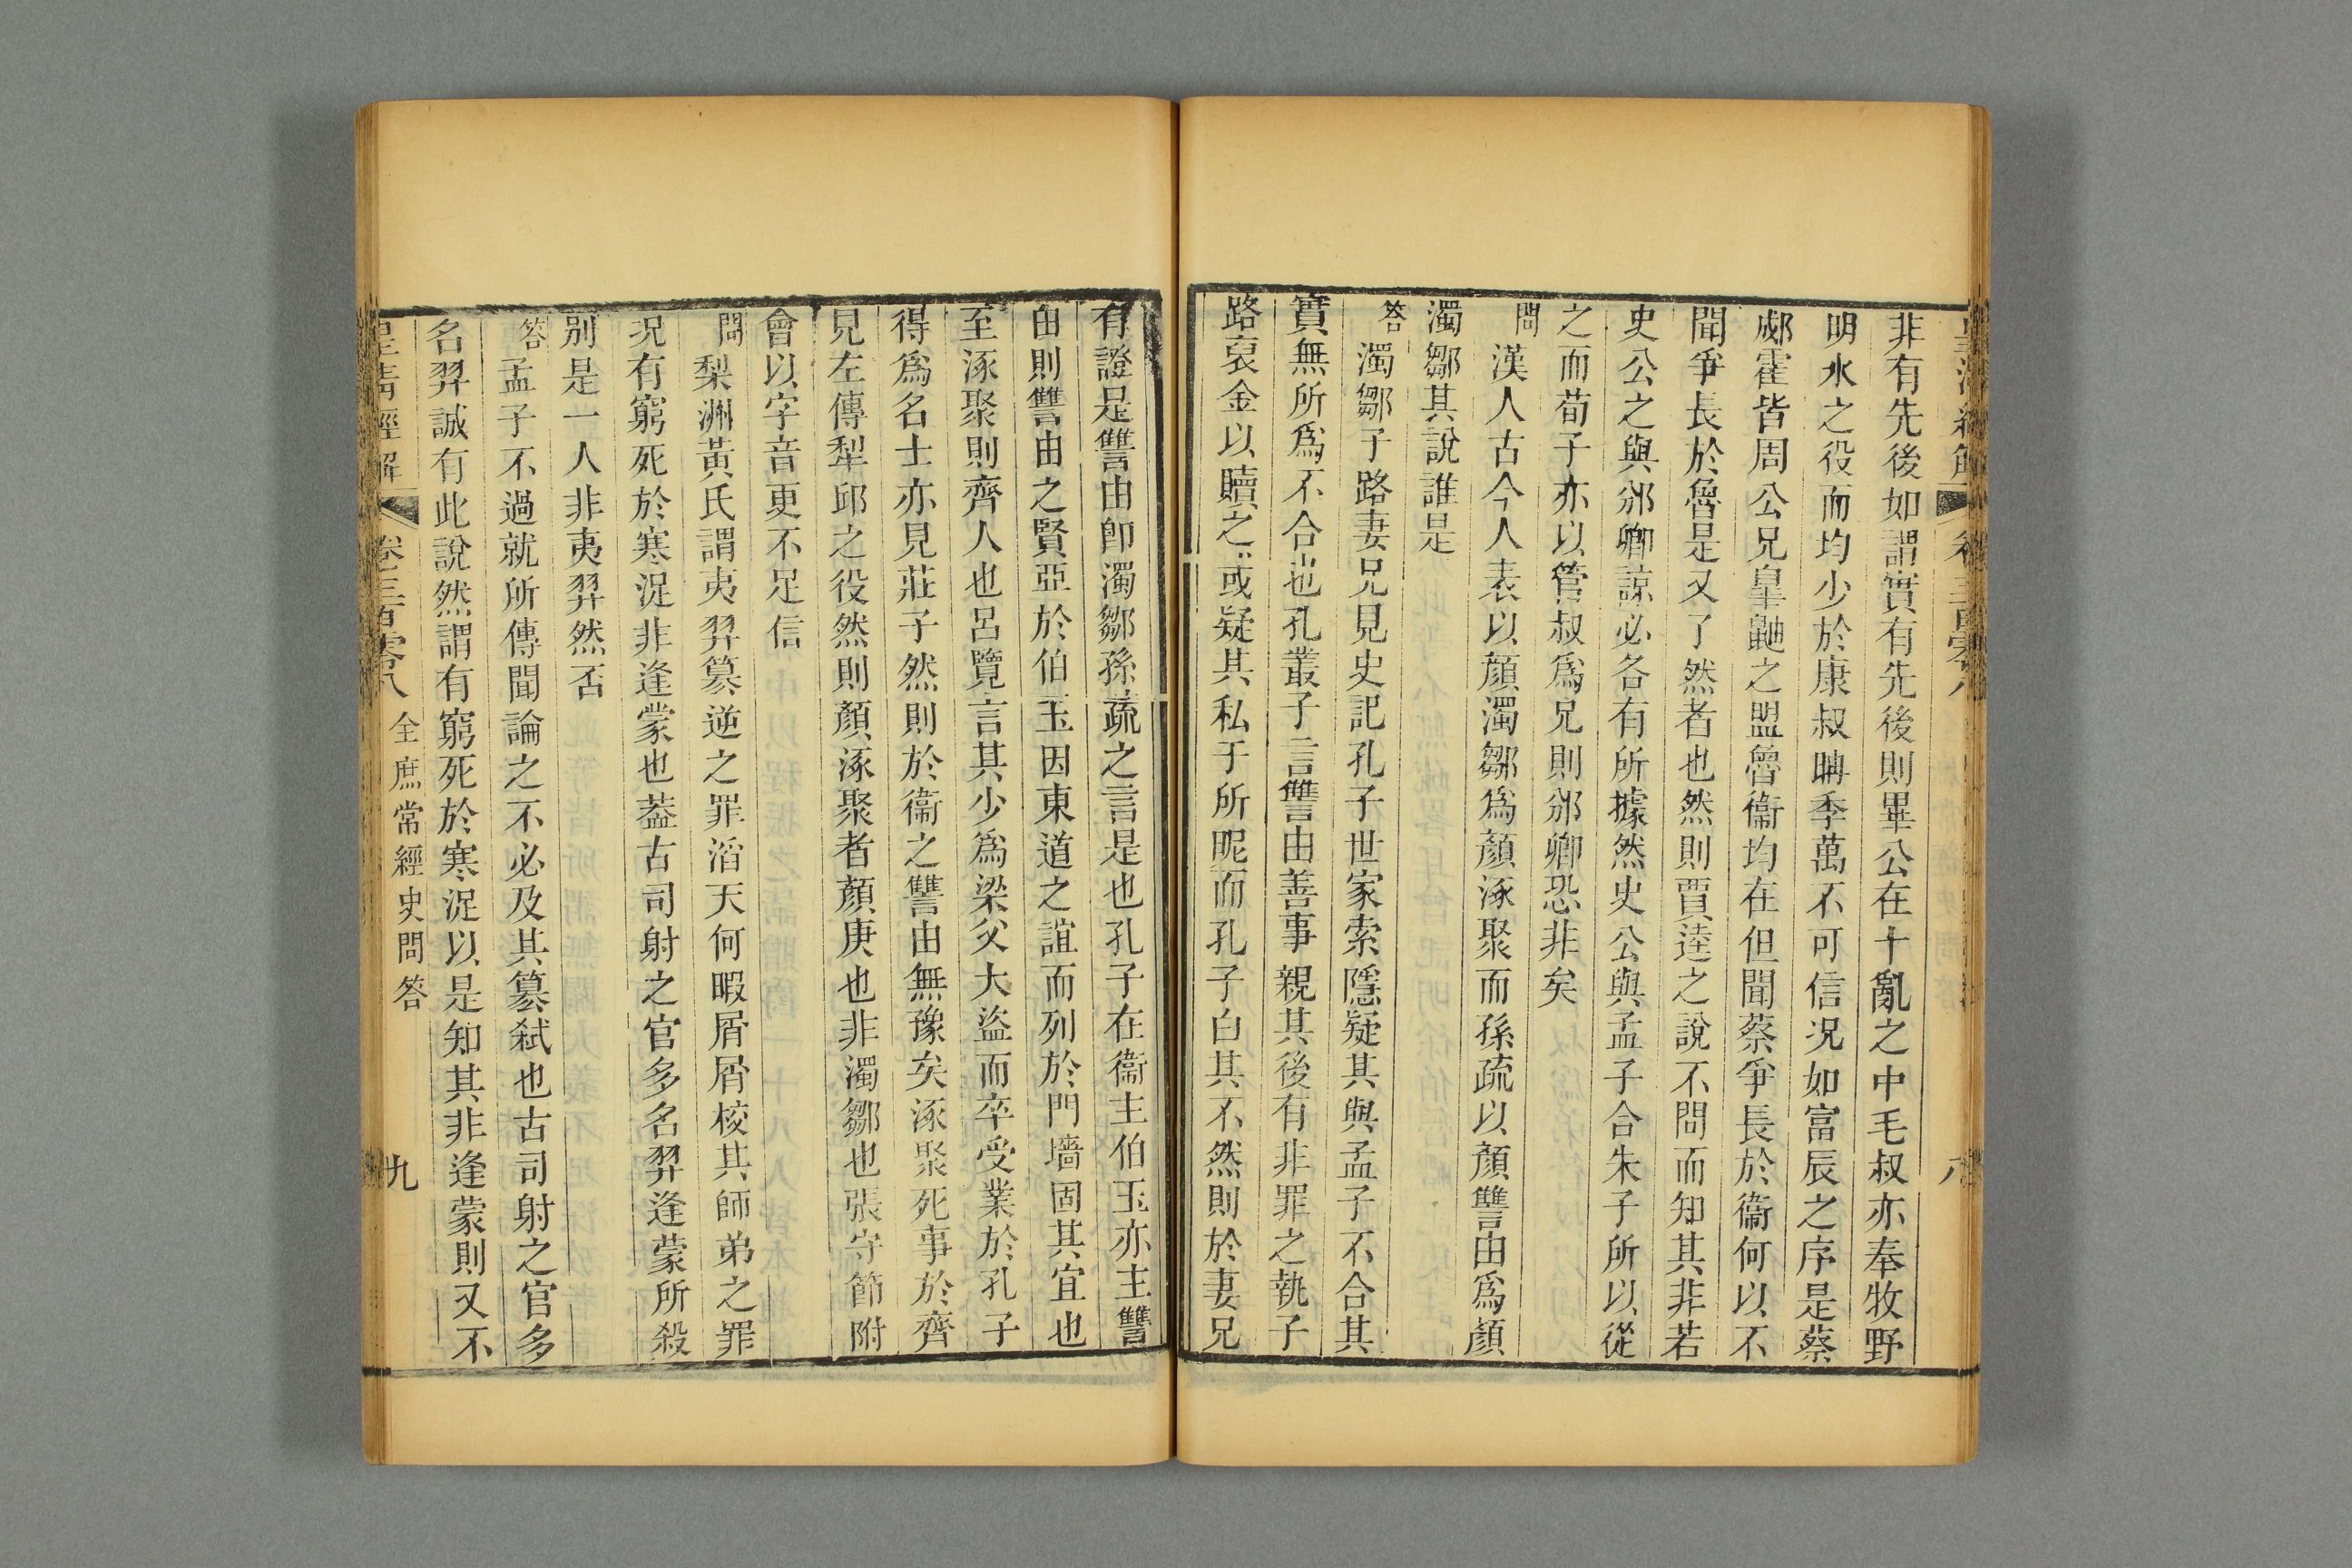 非有先後如謂實有先後則畢公在十亂之中毛叔亦奉牧野
明水之役而均少於康叔聃季萬不可信况如富辰之序是蔡
郕霍皆周公兄皐鼬之盟魯衞均在但聞蔡爭長於衞何以不
聞爭長於魯是又了然者也然則賈逵之說不問而知其非若
史公之與邠卿諒必各有所據然史公與孟子合朱子所以從
之而荀子亦以管叔爲兄則邠卿恐非矣
問漢人古今人表以顏濁鄒爲顏涿聚而孫疏以顏讐由爲顏
濁鄒其說誰是
答濁鄒子路妻兄見史記孔子世家索隱疑其與孟子不合其
實無所爲不合也孔叢子言讐由善事親其後有非罪之執子
路裒金以贖之或疑其私于所昵而孔子白其不然則於妻兄
有證足讐由卽濁鄒孫疏之言是也孔子在衞主伯玉亦主讐
由則讐由之賢亞於伯玉因東道之誼而列於門墻固其宜也
至涿聚則齊人也呂覽言其少爲梁父大盜而卒受業於孔子
得爲名士亦見莊子然則於衞之讐由無豫矣涿聚死事於齊
見左傳犁邱之役然則顏涿聚者顏庚也非濁鄒也張守節附
會以字音更不足信
問梨洲黃氏謂夷羿簒逆之罪滔天何暇屑屑校其師弟之罪
况有窮死於寒浞非逢蒙也葢古司射之官多名羿逢蒙所殺
別是一人非夷羿然否
答孟子不過就所傳聞論之不必及其簒弒也古司射之官多
名羿誠有此說然謂有窮死於寒浞以是知其非逢蒙則又不
皇清經解 卷三百零八 全庶常經史問答 九